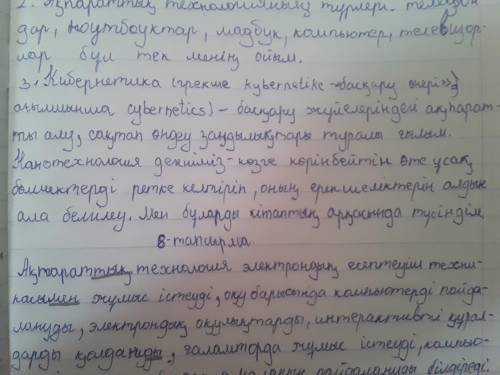 2. Ақпараттық технологияның түрлері. телефон
дар, ноутбоуктар, мадбук, компьютер, телевизор-
лар бұл тек менің ойым.
3. Кибернетика (грекше kybernetike - «басқару өнері»;
ағылшынша cybernetics) – басқару жүйелеріндегі ақпарат-
ты алу, сақтап өңдеу заңдылықтары туралы ғылым.
Нанотехнология дениміз - көзге көрінбейтін өте ұсақ
бөлшектерді ретке келтіріп, оның ерекшеліктерін алдын
ала белилеу. Мен бұларды кітаптың арқасында түсіндім.
8-тапсырма
Ақпараттық технология электрондық есептеуіш техни-
касымен жұмыс істеуді, оқу барысында компьютерді пайда-
лануды, электрондық оқулықтарды, интерактивті құрал-
дарды қолдануды, ғаламторда жұмыс істеуді, компью-
пайдалануды білдіреді.